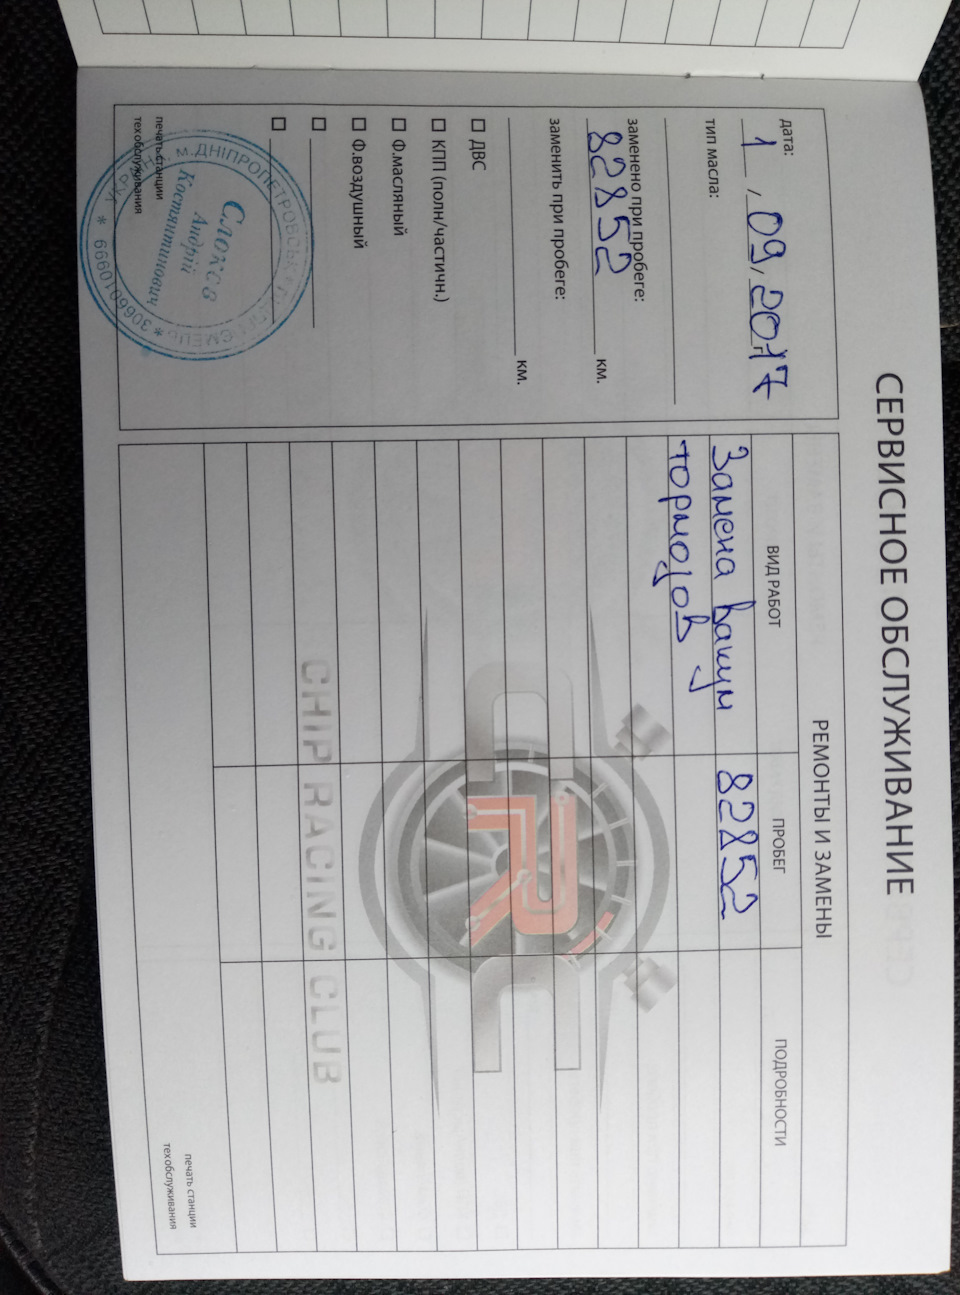 СЕРВИСНОЕ ОБСЛУЖИВАНИЕ
дата:
1, 09, 2017
тип масла:
заменено при пробеге:
82852 км.
заменить при пробеге:
км.
ДВС
КПП (полн/частичн.)
Ф.масляный
Ф.воздушный
печать станции
техобслуживания
м.ДНІПРОПЕТРОВСЬК
Андрій
Костянтинович
РЕМОНТЫ И ЗАМЕНЫ
ВИД РАБОТ ПРОБЕГ ПОДРОБНОСТИ
Замена вакум 82852
тормозов
CRC
CHIP RACING CLUB
печать станции
техобслуживания